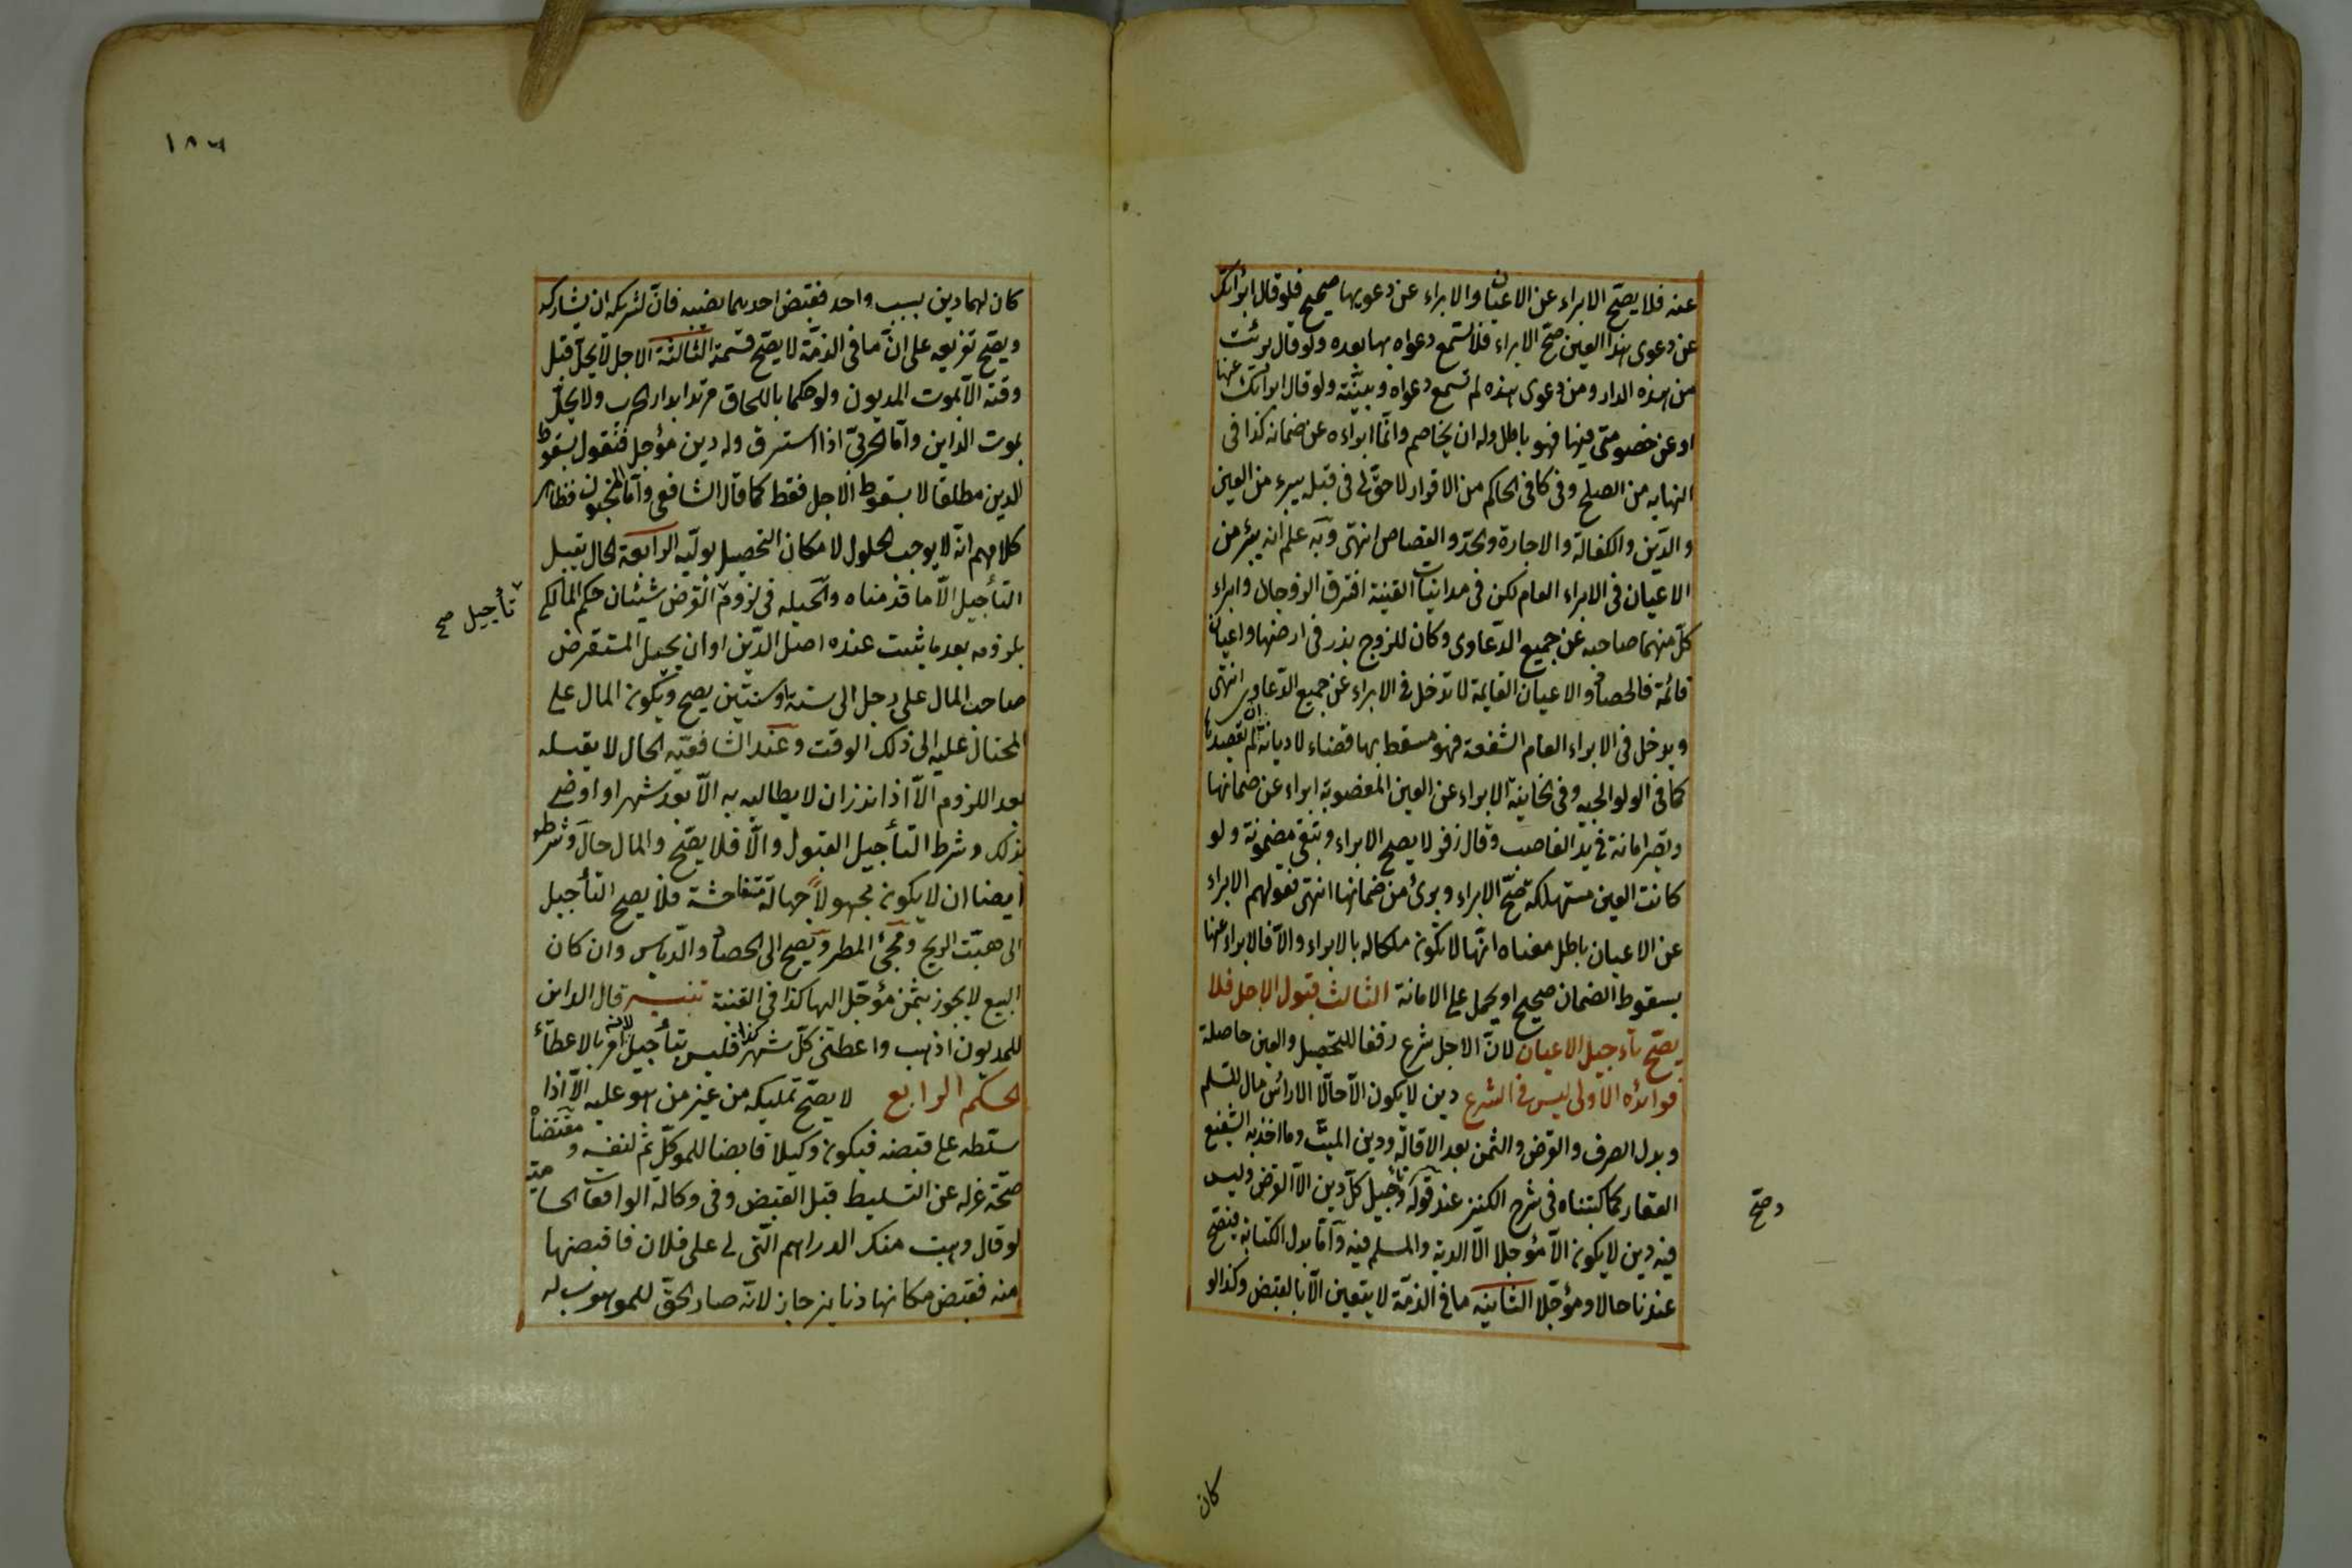 عنه فلا يصحّ الابراء عن الاعيان والابراء عن دعويها صحيح فلو قال ابرأتك
عن دعوى هذا العين صحّ الابراء فلا تسمع دعواه بها بعده ولو قال برئت
من هذه الدار ومن دعوى هذه لم تسمع دعواه وبيّنته ولو قال ابرأتك عنها
او عن خصومتى فيها فهو باطل وله ان يخاصم وانّما ابراءه عن ضمانه كذا فى
النهايه من الصلح وفى كافى الحاكم من الاقرار لا حقّ لى فى قبله يبرء من العين
والدّين والكفالة والاجارة والحدّ والقصاص انتهى وبه علم انه يبرؤ من
الاعيان فى الابراء العام لكن فى مداينات القينة افترق الزوجان وابراء
كلّ منهما صاحبه عن جميع الدّعاوى وكان للزوج بذر فى ارضها واعيان
قائمة فالحصاد والاعيان القايمة لا تدخل فى الابراء عن جميع الدّعاوى انتهى
ويدخل فى الابراء العام الشفعة فهو مسقط بها قضاء لا ديانة ان لم يقصدها
كما فى الولوالجيه وفى الخانية الابراء عن العين المغصوبة ابراء عن ضمانها
وتصير امانة فى يد الغاصب وقال زفر لا يصح الابراء وتبقى مضمونة ولو
كانت العين مستهلكة صحّ الابراء وبرئ من ضمانها انتهى فقولهم الابراء
عن الاعيان باطل معناه انّها لا تكون ملكا له بالابراء والاّ فالابراء عنها
بسقوط الضمان صحيح او يحمل على الامانة الثالث قبول الاجل فلا
يصحّ تأجيل الاعيان لانّ الاجل شرع رفقا للتحصيل والعين حاصلة
فوائده الاولى ليس فى الشرع دين لا يكون الاّ حالّا الا رأس مال السلم
وبدل الصرف والقرض والثمن بعد الاقالة ودين الميّت وما اخذ به الشفيع
العقار كما كتبناه فى شرح الكنز عند قوله وتأجيل كلّ دين الاّ القرض وليس
فيه دين لا يكون الاّ مؤجلا الاّ الدية والمسلم فيه وامّا بدل الكتابة فيصحّ
عندنا حالا ومؤجّلا الثانيه ما فى الذمّة لا يتعين الاّ بالقبض وكذا لو
وصحّ
كان
١٨٦
كان لهما دين بسبب واحد فقبض احدهما نصيبه فانّ لشريكه ان يشاركه
ويصحّ تفريعه على انّ ما فى الذمّة لا يصحّ قسمة الثالثة الاجل لا يحلّ قبل
وقته الاّ بموت المديون ولو حكما باللحاق مرتدا بدار الحرب ولا يحلّ
بموت الداين وامّا الحربىّ اذا استرق وله دين مؤجل فنقول بسقوط
الدين مطلقا لا بسقوط الاجل فقط كما قال الشافعى وامّا المجنون فظاهر
كلامهم انّه لا يوجب الحلول لامكان التحصيل بوليّه الرابعة الحال يقبل
التأجيل الاّ ما قدّمناه والحيله فى لزوم القرض شيئان حكم المالكى
تأجيل صح
بلزومه بعد ما يثبت عنده اصل الدّين او ان يحيل المستقرض
صاحب المال على رجل الى سنة او سنتين يصح ويكون المال على
المحتال عليه الى ذلك الوقت وعند الشافعيّه الحال لا يقبله
بعد اللزوم الاّ اذا نذر ان لا يطالبه به الاّ بعد شهر او اوصى
بذلك وشرط التأجيل القبول والاّ فلا يصحّ والمال حالّ وشرطه
ايضا ان لا يكون مجهولاً جهالة متفاحشة فلا يصح التأجيل
الى هبّت الريح ومجئ المطر ويصح الى الحصاد والدّياس وان كان
البيع لا يجوز بثمن مؤجّل اليها كذا فى القنية تنبيه قال الداين
للمديون اذهب واعطنى كلّ شهر كذا فليس بتأجيل لانه امر بالاعطاء
الحكم الرابع لا يصحّ تمليكه من غير من هو عليه الاّ اذا
سلّطه على قبضه فيكون وكيلا قابضا للموكّل ثم لنفسه ومقتضاه
صحّة عزله عن التسليط قبل القبض وفى وكالة الواقعات الحساميّة
لو قال وهبت منك الدراهم الّتى لى على فلان فاقبضها
منه فقبض مكانها دنانير جاز لانّه صار الحقّ للموهوب له